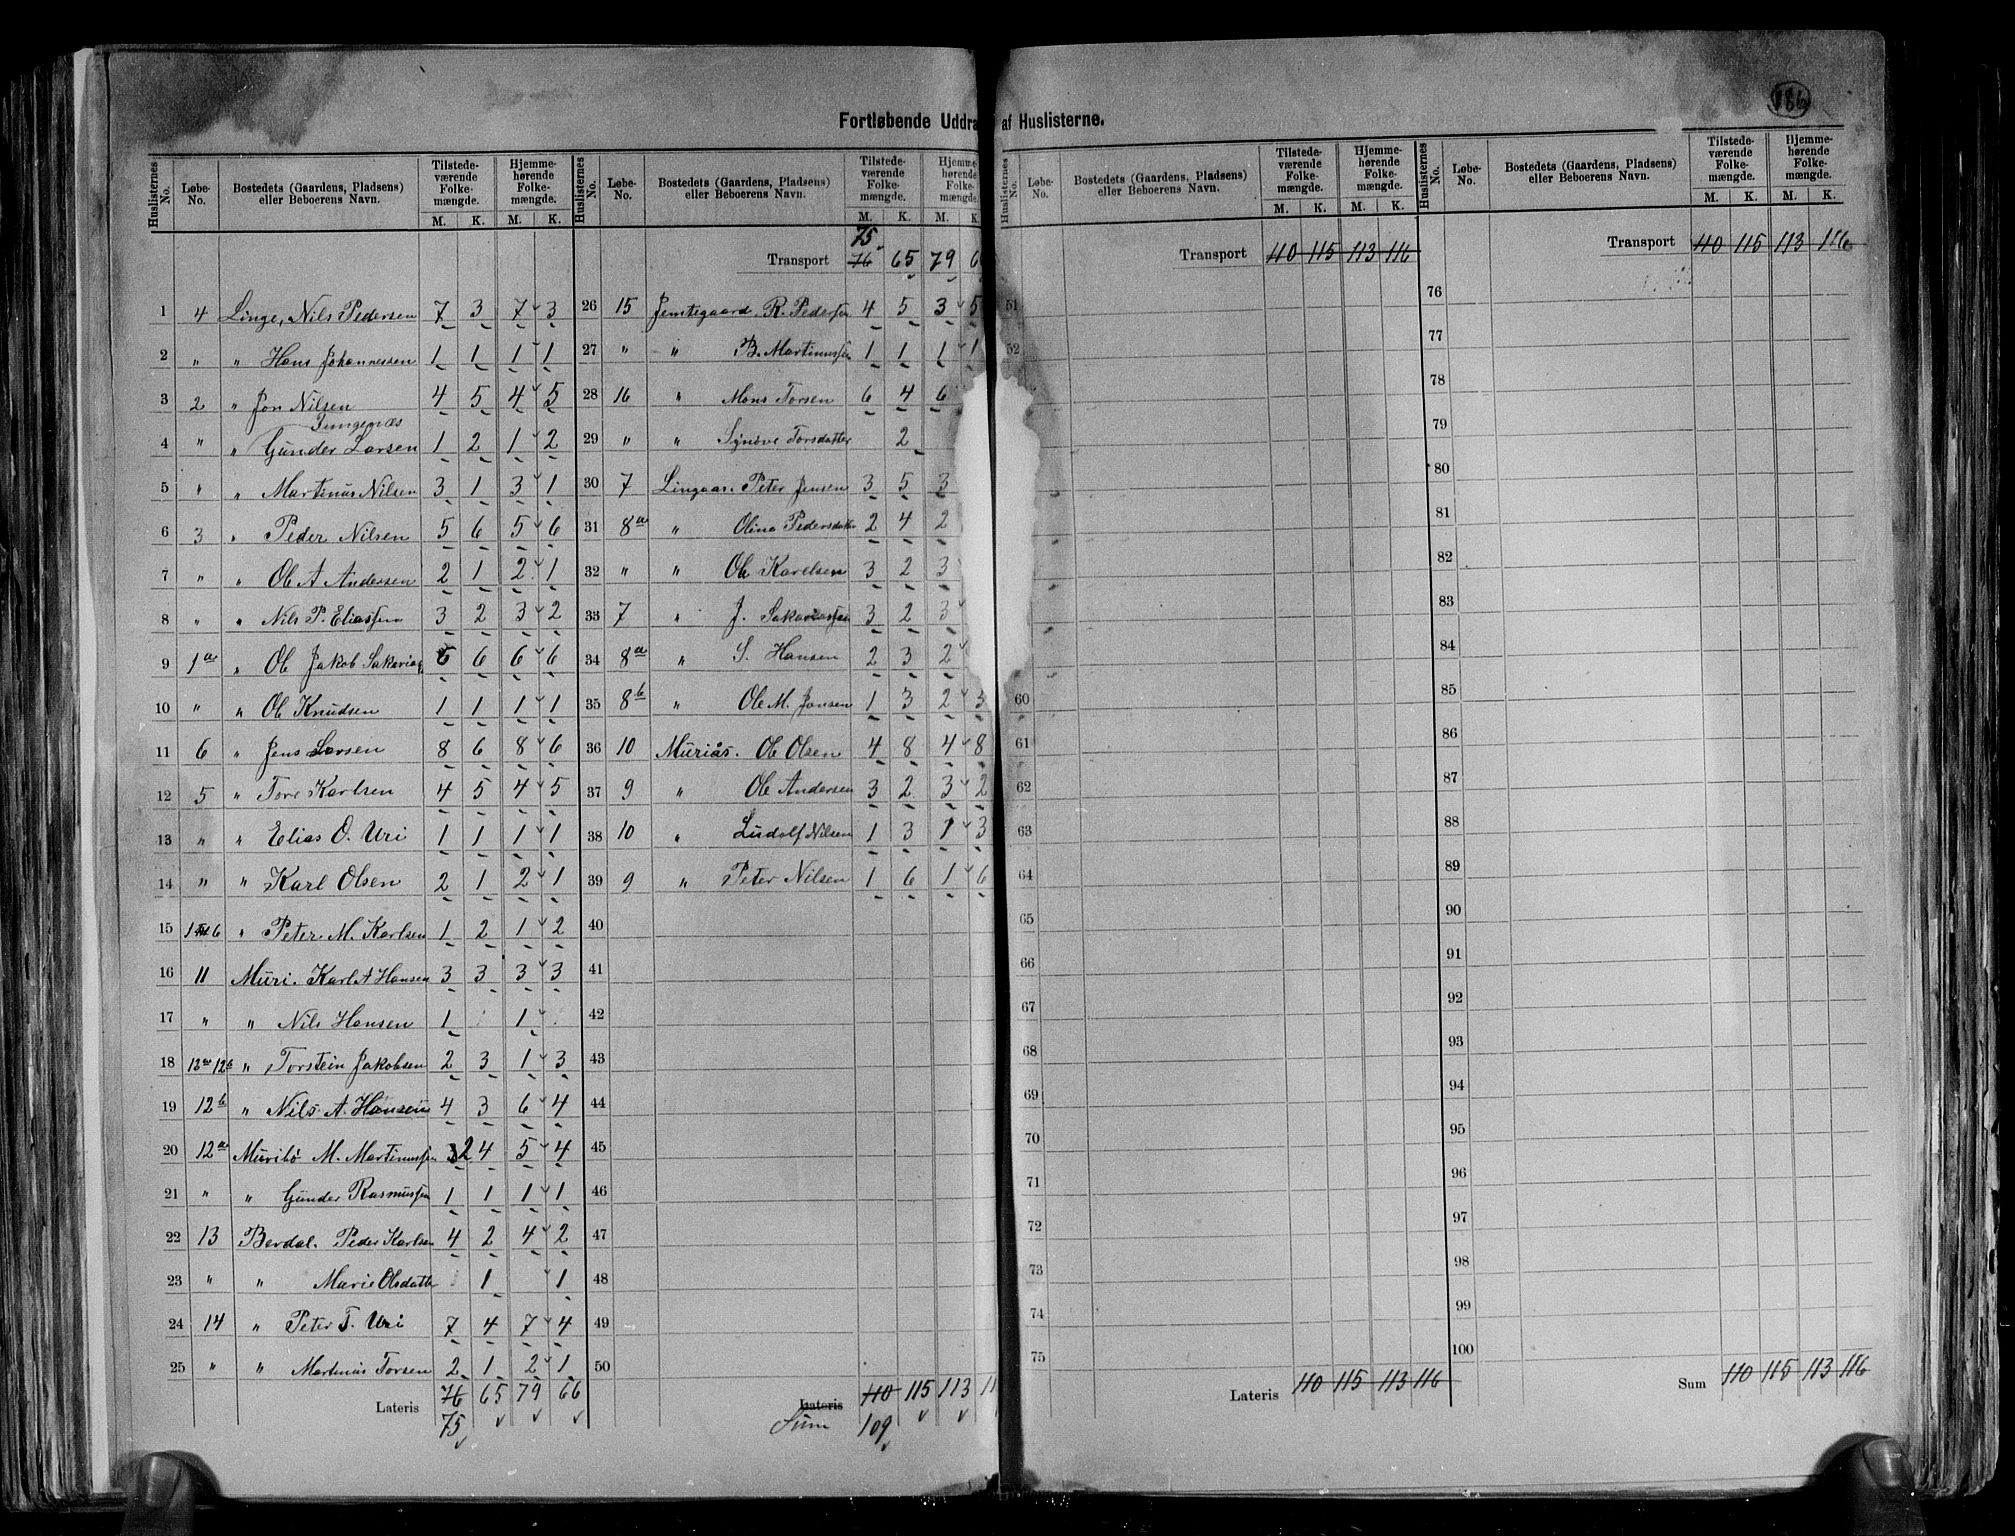 186
Fortløbende Uddra af Huslisterne.
Huslisternes No. Løbe-No. Bostedets (Gaardens, Pladsens) eller Beboerens Navn. Tilstedeværende Folkemængde. M. K. Hjemmehørende Folkemængde. M. K.
1 4 Linge, Nils Pedersen 7 3 7 3
2 " " Hans Johannessen 1 1 1 1
3 2 " Jon Nilsen 4 5 4 5
4 " " Gunder Larsen 1 2 1 2
5 " " Martinus Nilsen 3 1 3 1
6 3 " Peder Nilsen 5 6 5 6
7 " " Ole A Andersen 2 1 2 1
8 " " Nils P. Eliassen 3 2 3 2
9 1a " Ole Jakob Sakarias 6 6 6 6
10 " " Ole Knudsen 1 1 1 1
11 6 " Jens Larsen 8 6 8 6
12 5 " Tore Karlsen 4 5 4 5
13 " " Elias O. Uri 1 1 1 1
14 " " Karl Olsen 2 1 2 1
15 " Peter M. Karlsen 1 2 1 2
16 11 Muri. Karl A Hansen 3 3 3 3
17 " " Nils Hansen 1 1
18 12a 12b " Torstein Jakobsen 2 3 1 3
19 12b " Nils A. Hansen 4 3 6 4
20 12a Muribö M. Martinussen 2 4 5 4
21 " " Gunder Rasmussen 1 1 1 1
22 13 Berdal. Peder Karlsen 4 2 4 2
23 " " Marie Olsdatter 1 1
24 14 " Peter T. Uri 7 4 7 4
25 " " Martinus Torsen 2 1 2 1
Lateris 76 65 79 66
75
Huslisternes No. Løbe-No. Bostedets (Gaardens, Pladsens) eller Beboerens Navn. Tilstedeværende Folkemængde. M. K. Hjemmehørende Folkemængde. M. K.
75
Transport 76 65 79 6
26 15 Jemtegaard R. Pedersen 4 5 3 5
27 " " B. Martinussen 1 1 1 1
28 16 " Mons Torsen 6 4 6
29 " " Synöve Torsdatter 2
30 7 Lingaas. Peter Jensen 3 5 3
31 8a " Olina Pedersdatter 2 4 2
32 " " Ole Karelsen 3 2 3
33 7 " J. Sakariassen 3 2 3
34 8a " S. Hansen 2 3 2
35 8b " Ole M. Jonsen 1 3 2 3
36 10 Muriås. Ole Olsen 4 8 4 8
37 9 " Ole Andersen 3 2 3 2
38 10 " Ludolf Nilsen 1 3 1 3
39 9 " Peter Nilsen 1 6 1 6
40
41
42
43
44
45
46
47
48
49
50
Lateris 110 115 113 11
Sum 109
Huslisternes No. Løbe-No. Bostedets (Gaardens, Pladsens) eller Beboerens Navn. Tilstedeværende Folkemængde. M. K. Hjemmehørende Folkemængde. M. K.
Transport 110 115 113 116
51
52
60
61
62
63
64
65
66
67
68
69
70
71
72
73
74
75
Lateris 110 115 113 116
Huslisternes No. Løbe-No. Bostedets (Gaardens, Pladsens) eller Beboerens Navn. Tilstedeværende Folkemængde. M. K. Hjemmehørende Folkemængde. M. K.
Transport 110 115 113 116
76
77
78
79
80
81
82
83
84
85
86
87
88
89
90
91
92
93
94
95
96
97
98
99
100
Sum 110 115 113 116